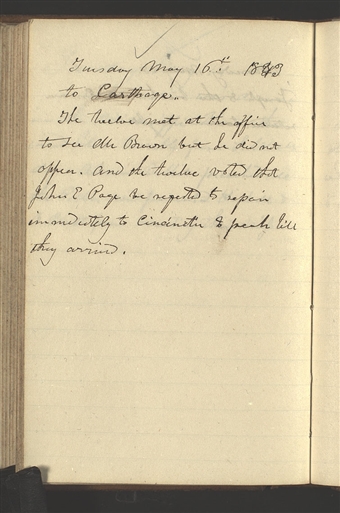 Tuesday May 16th 1843
to Carthage.
The twelve met at the office
to see Mr Brown but he did not
appear. and the twelve voted that
John E Page be reqested to repair
immediately to Cincinatti to preach till
they arrived.